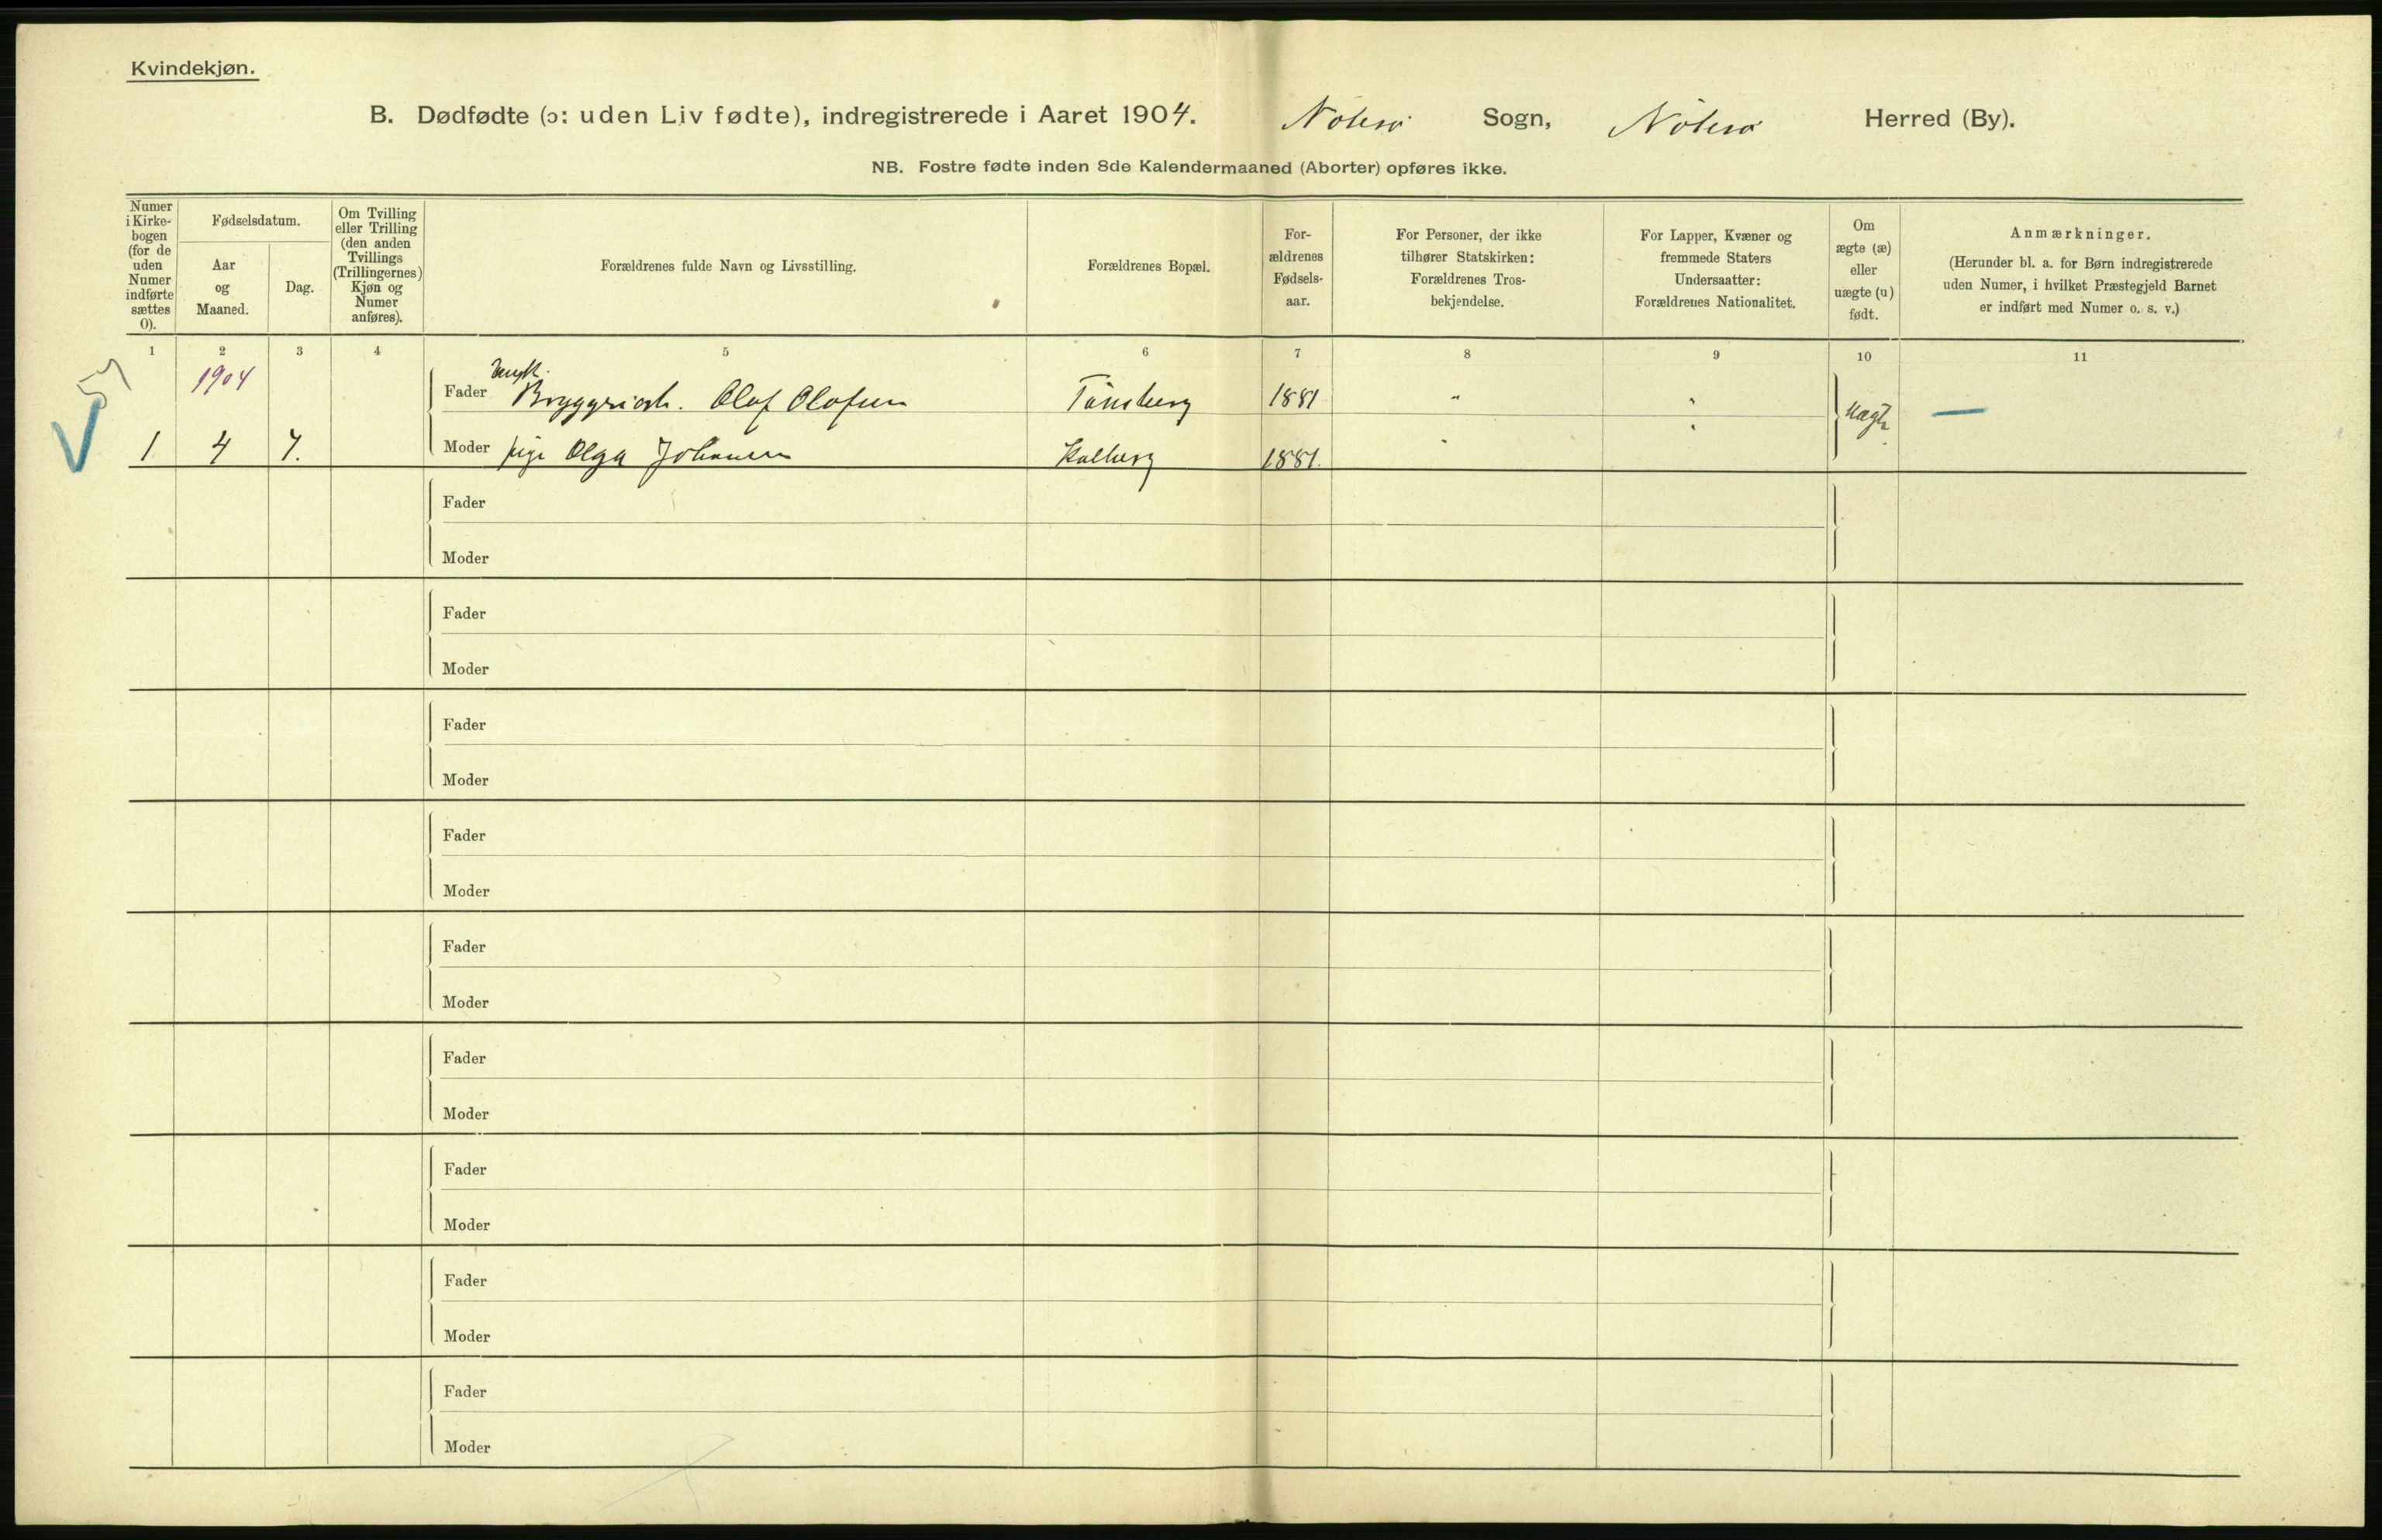 Kvindekjøn.
B. Dødfødte (ɔ: uden Liv fødte), indregistrerede i Aaret 1904. Nøterø Sogn, Nøterø Herred (By).
NB. Fostre fødte inden 8de Kalendermaaned (Aborter) opføres ikke.
Numer
i Kirke-
bogen
(for de
uden
Numer
indførte
sættes
0).
Fødselsdatum.
Aar
og
Maaned.
Dag.
Om Tvilling
eller Trilling
(den anden
Tvillings
(Trillingernes)
Kjøn og
Numer
anføres).
Forældrenes fulde Navn og Livsstilling.
Forældrenes Bopæl.
For-
ældrenes
Fødsels-
aar.
For Personer, der ikke
tilhører Statskirken:
Forældrenes Tros-
bekjendelse.
For Lapper, Kvæner og
fremmede Staters
Undersaatter:
Forældrenes Nationalitet.
Om
ægte (æ)
eller
uægte (u)
født.
Anmærkninger.
(Herunder bl. a. for Børn indregistrerede
uden Numer, i hvilket Præstegjeld Barnet
er indført med Numer o. s. v.)
1 2 3 4 5 6 7 8 9 10 11
1904
Ungk.
Fader Bryggeriarb. Olaf Olofsen Tønsberg 1881 " " uægte —
1 4 7. Moder pige Olga Johansen Kolberg 1881. " "
Fader
Moder
Fader
Moder
Fader
Moder
Fader
Moder
Fader
Moder
Fader
Moder
Fader
Moder
Fader
Moder
Fader
Moder